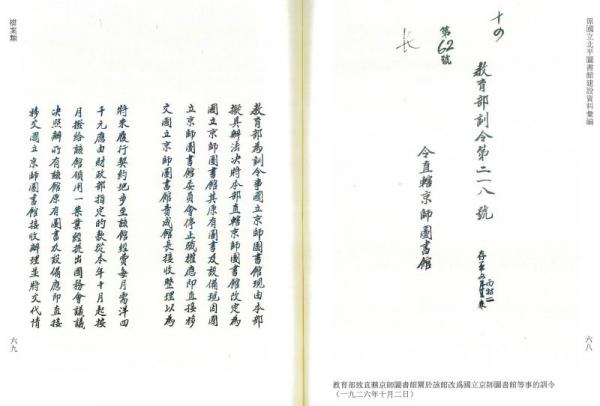 原國立北平圖書館建設資料彙編
六八
教育部訓令第二一八號
令直轄京師圖書館
第62號
十の
長
教育部致直轄京師圖書館關於該館改爲國立京師圖書館等事的訓令
（一九二六年十月二日）
教育部為訓令事國立京師圖書館現由本部
擬具辦法決將本部直轄京師圖書館改定為
國立京師圖書館其原有圖書及設備現因國
立京師圖書館委員會停止職權應即直接移
交國立京師圖書館責成館長接收整理以為
將來履行契約地步至該館經費每月需洋四
千元應由財政部指定的款從本年十月起按
月撥給該館領用一案業經提出國務會議議
決照辦所有該館原有圖書及設備應即直接
移交國立京師圖書館接收辦理並將交代情
檔案類
六九